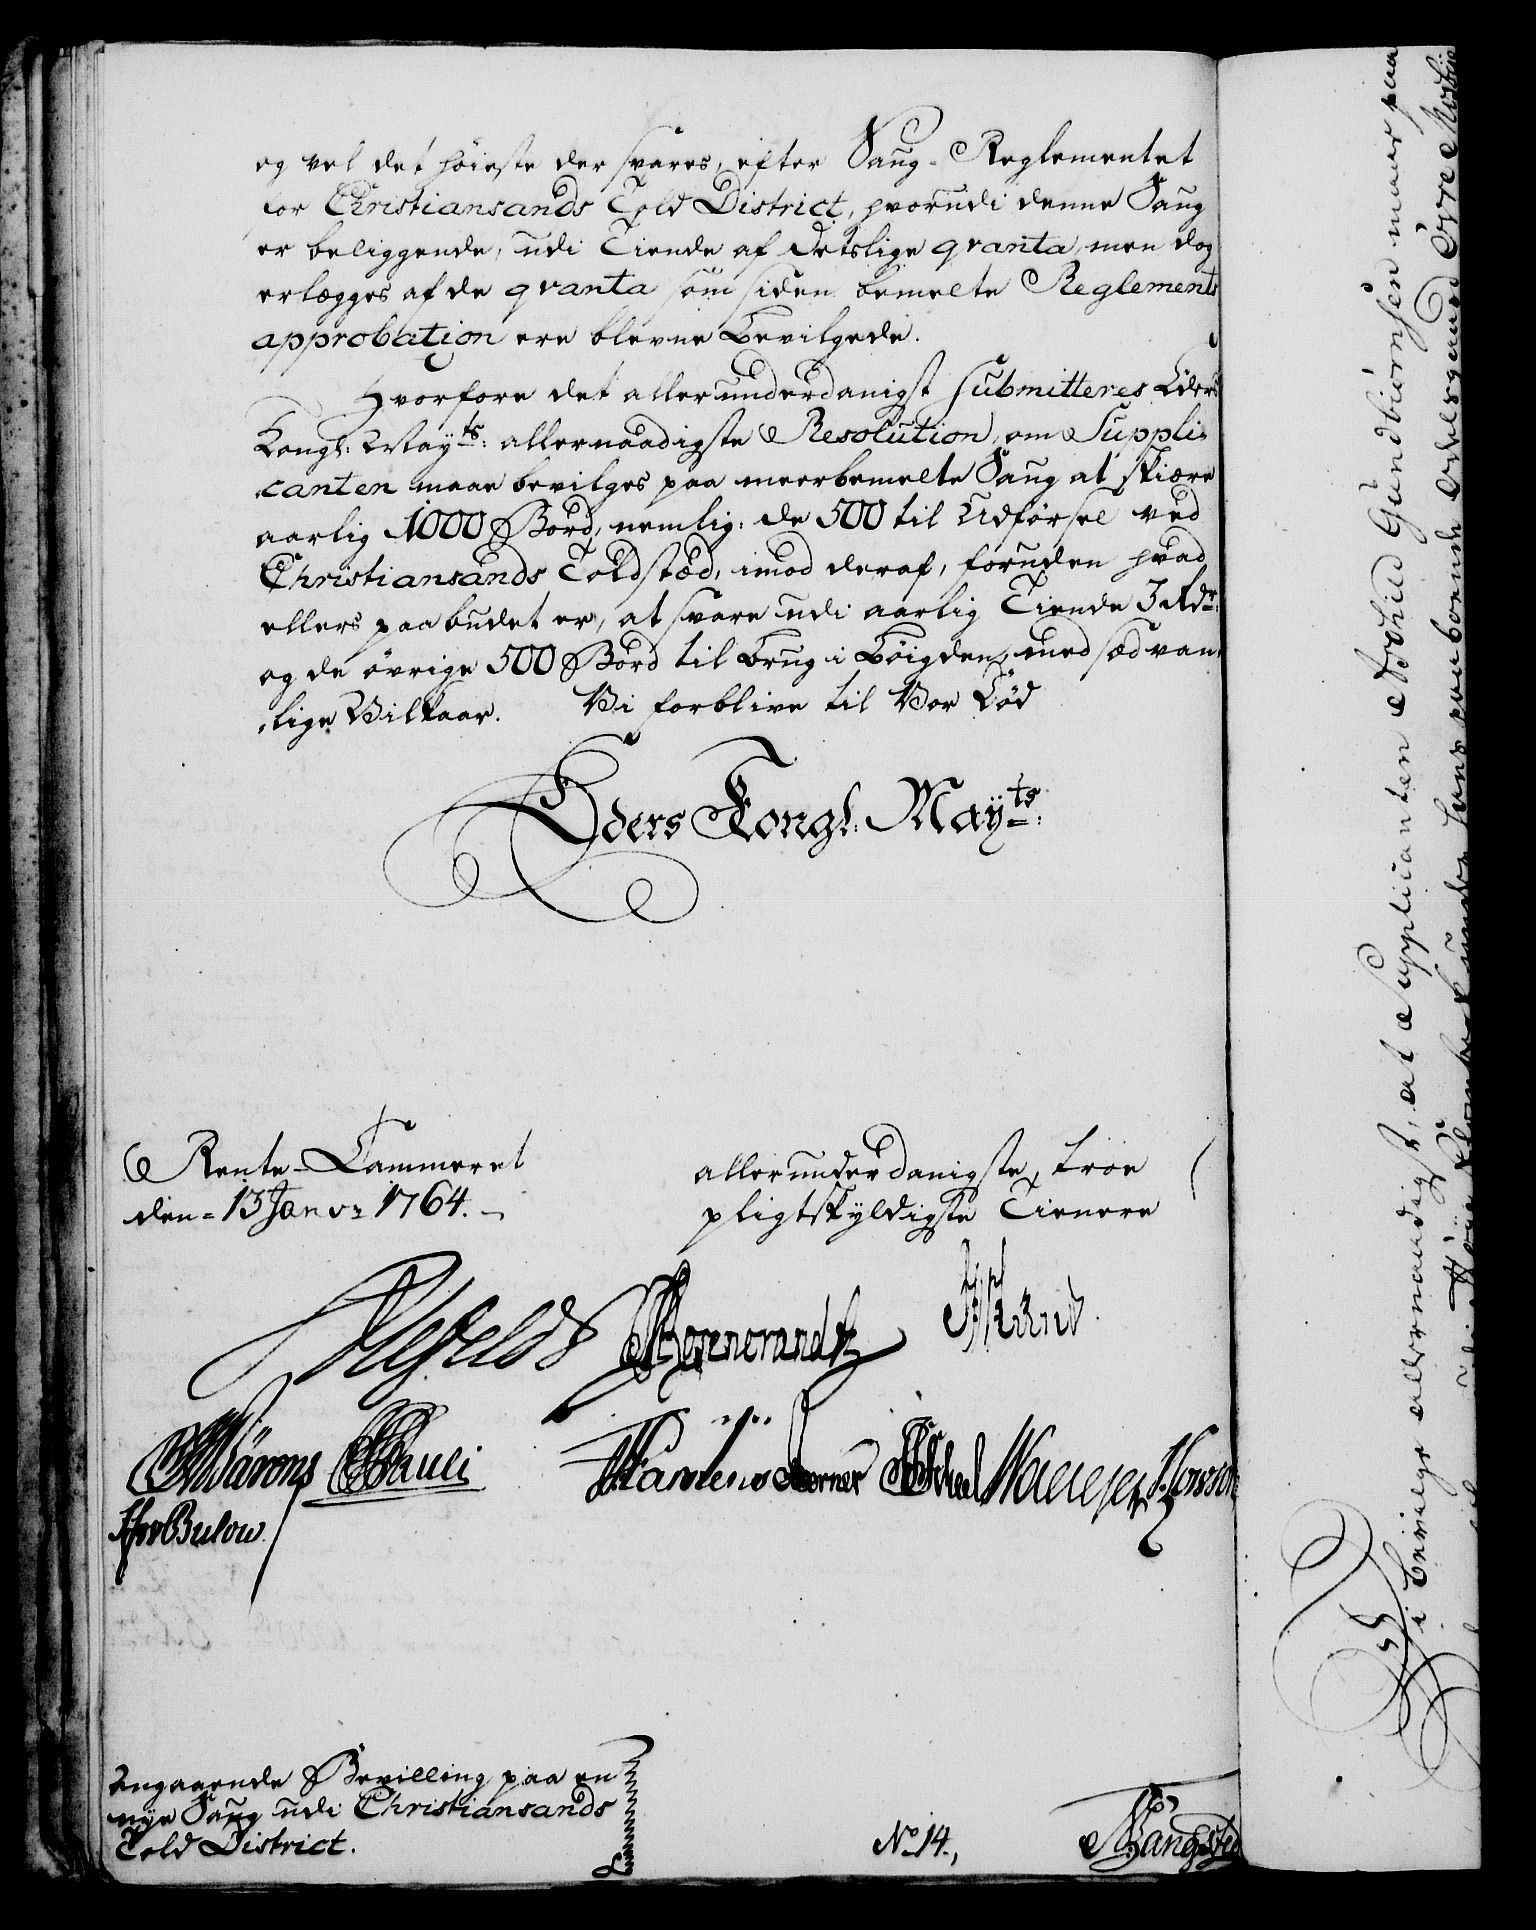 og vel det høieste der svares, efter Saug-Reglementet
for Christiansands Told District, hvorudi denne Saug
er beliggende, udi Tiende af detslige qvanta, men dog
erlægges af de qvanta som siden bemelte Reglements
approbation ere blevne bevilgede.
Hvorfore det allerunderdanigst submitteres Eders
Kongl: May<sup>ts</sup>: allernaadigste Resolution, om Suppli-
canten maae bevilges paa meerbemelte Saug at skiære
aarlig 1000 Bord, nemlig: de 500 til Udførsel ved
Christiansands Toldstæd, imod deraf, foruden hvad
ellers paabudet er, at svare udi aarlig Tiende 3 Rdr:
og de øvrige 500 Bord til brug i bøigden, med sædvan-
lige Vilkaar. Vi forblive til Vor Død
Eders Kongl: May<sup>ts</sup>:
Rente-Cammeret
den 13 Janvr 1764.
allerunderdanigste, troe
pligtskyldigste Tienere
Pauli
Bulow
Angaaende Bevilling paa en
nye Saug udi Christiansands
Told District.
No 14.
Bangsted
Vi bevilge allernaadigst, at Supplicanten Gundbiørnsen maae paa